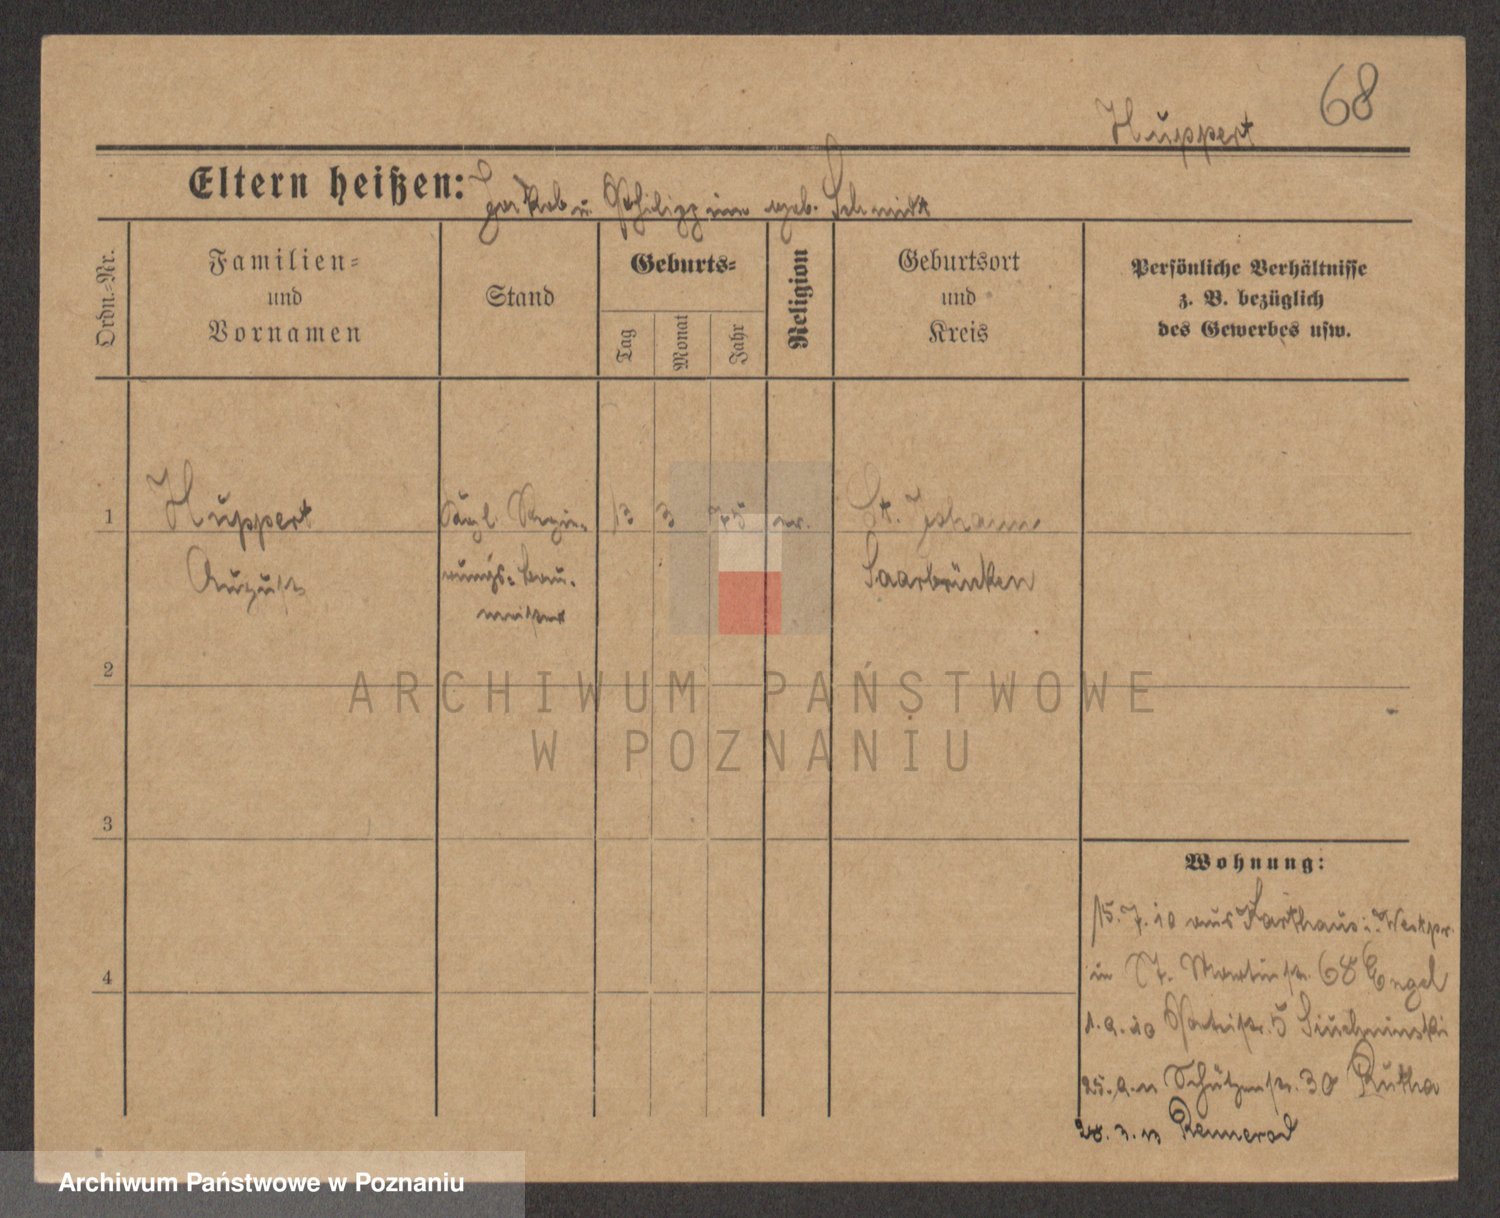 68
Huppert
Eltern heißen: Jakob u. Philippine geb. Schmidt
Ordn.-Nr.
Familien-
und
Vornamen
Stand
Geburts-
Tag
Monat
Jahr
Religion
Geburtsort
und
Kreis
Persönliche Verhältnisse
z. B. bezüglich
des Gewerbes usw.
1 Huppert Kgl. Regie- 13 3 75 ev. St. Johann
August rungs-bau- Saarbrücken
meister
2
ARCHIWUM PAŃSTWOWE
W POZNANIU
3
Wohnung:
15.7.10 aus Karthaus i. Westpr.
4
in St. Martinstr. 68 Engel
1.9.10 5
25.9.11 Schützenstr. 30 Rutha
28.3.13 Rennerod
Archiwum Państwowe w Poznaniu